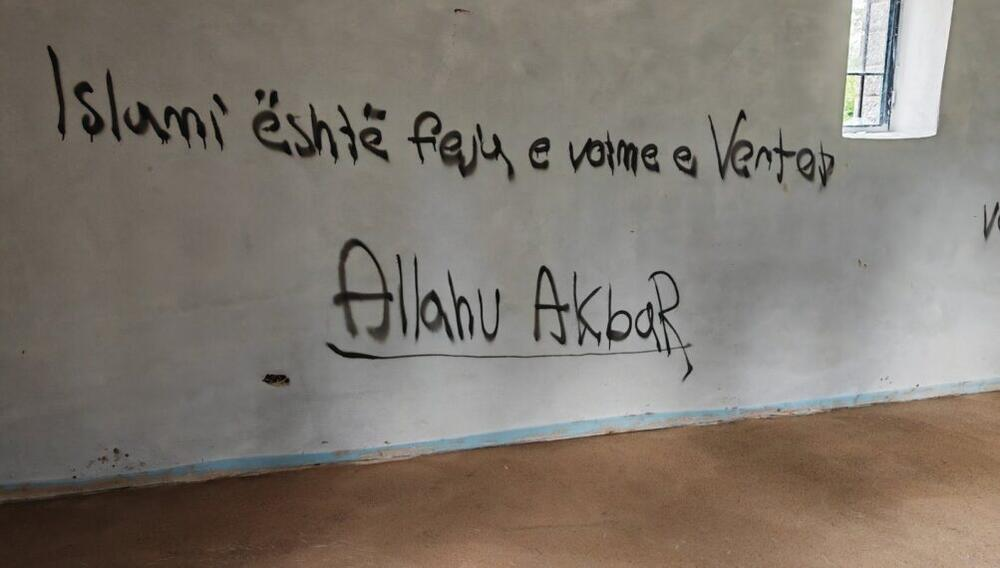 Islami është feja e vetme e Vërtet
Allahu AkbaR